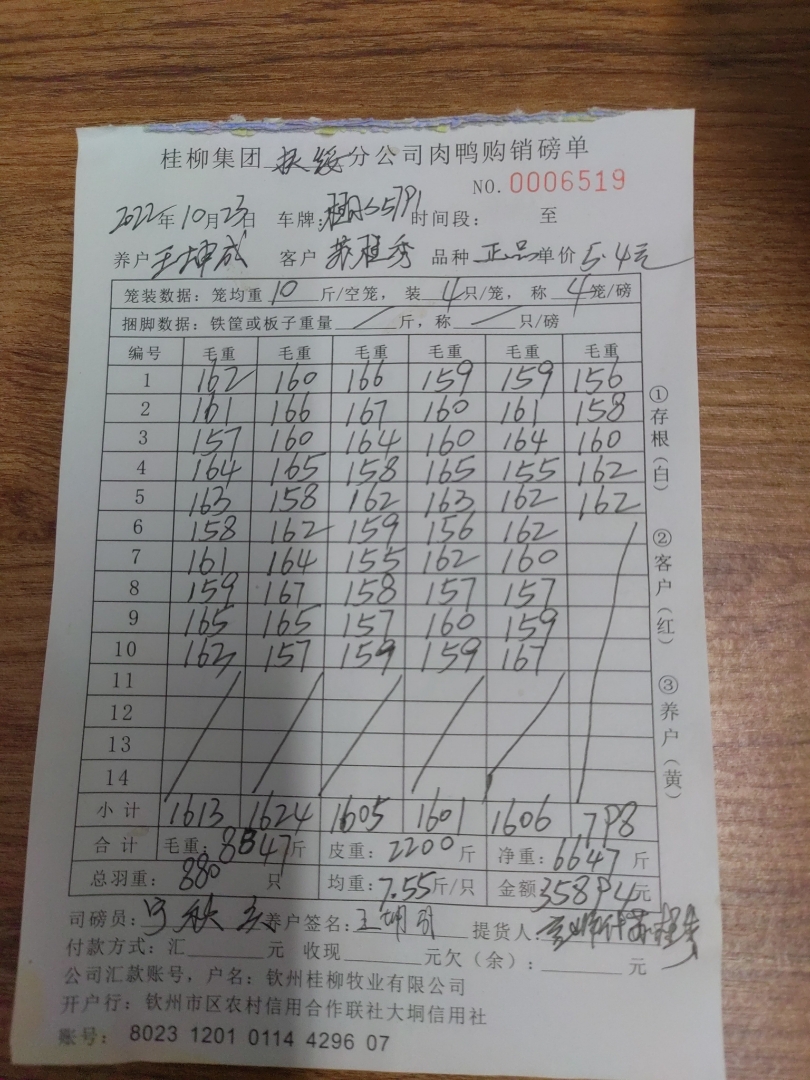 桂柳集团 扶绥 分公司肉鸭购销磅单
NO. 0006519
2022年10月23日 车牌: 时间段: 至
养户 王坤成 客户 苏桂秀 品种 正品 单价 5.4元
笼装数据: 笼均重 10 斤/空笼, 装 4 只/笼, 称 4 笼/磅
捆脚数据: 铁筐或板子重量 / 斤, 称 / 只/磅
编号 毛重 毛重 毛重 毛重 毛重 毛重
1 162 160 166 159 159 156
2 161 166 167 160 161 158
3 157 160 164 160 164 160
4 164 165 158 165 155 162
5 163 158 162 163 162 162
6 158 162 159 156 162
7 161 164 155 162 160
8 159 167 158 157 157
9 165 165 157 160 159
10 163 157 159 159 167
11
12
13
14
小计 1613 1624 1605 1601 1606 798
合计 毛重: 8847斤 皮重: 2200斤 净重: 6647斤
总羽重: 880 只 均重: 7.55斤/只 金额 35894元
司磅员: 养户签名: 提货人:
付款方式: 汇 元 收现 元欠(余): 元
公司汇款账号, 户名: 钦州桂柳牧业有限公司
开户行: 钦州市区农村信用合作联社大垌信用社
账号: 8023 1201 0114 4296 07
①存根(白)
②客户(红)
③养户(黄)